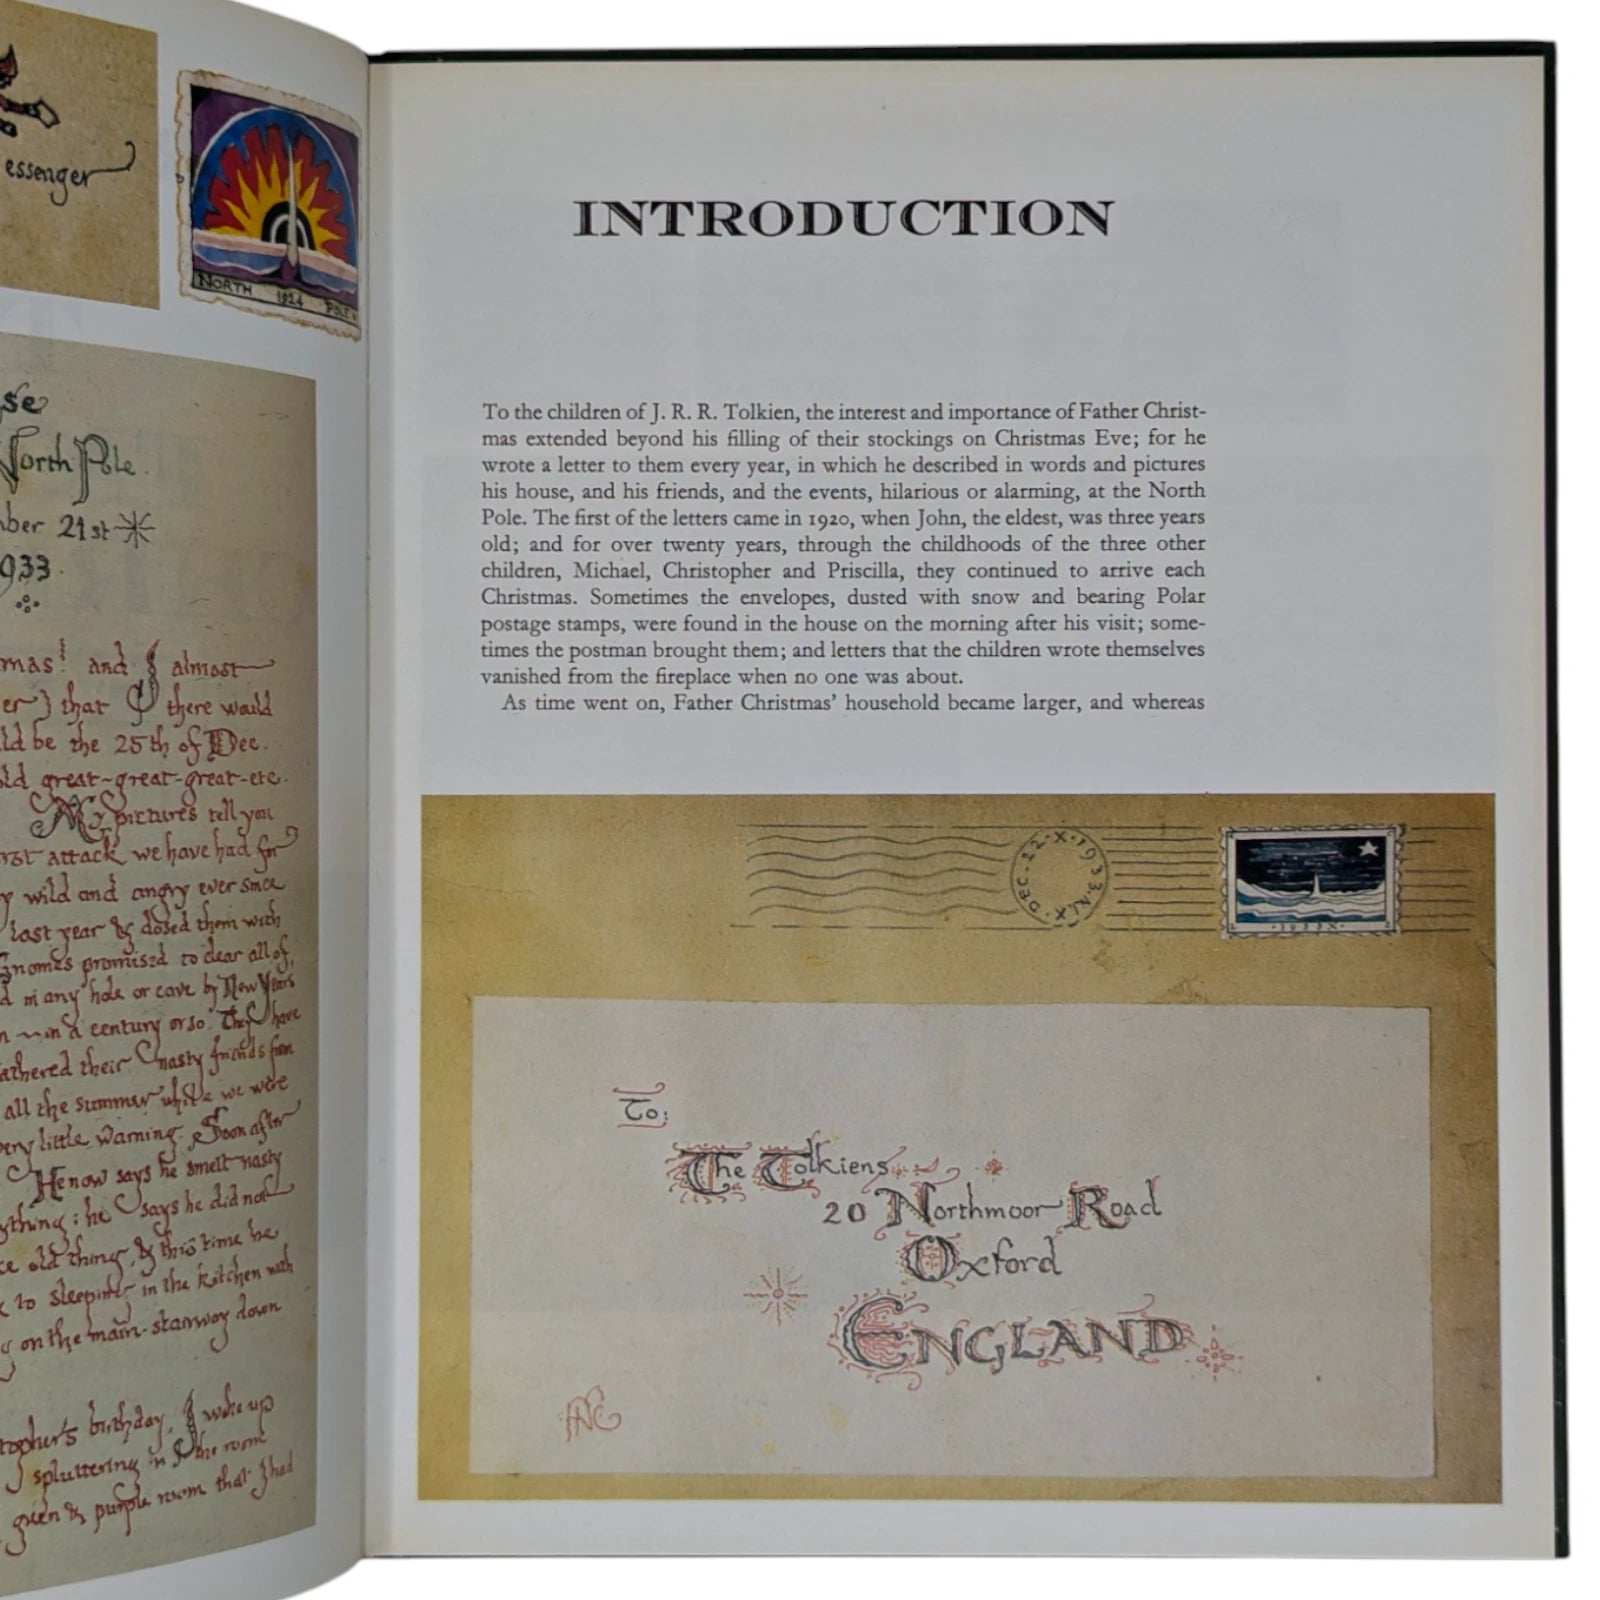 essenger
NORTH 1924 POLE
se
North Pole.
ber 21st
933.
mas! and I almost
er) that I there would
ld be the 25th of Dec.
old great-great-great-etc.
My pictures tell you
rst attack we have had for
y wild and angry ever since
last year & dosed them with
Gnomes promised to clear all of
d in any hole or cave by New Years
n in a century or so. They have
athered their nasty friends from
all the summer while we were
very little warning. Soon after
He now says he smelt nasty
ything: he says he did not
ce old thing, & this time he
to sleeping in the kitchen with
y on the main-stairway down
topher's birthday, I woke up
spluttering in the room
green & purple room that I had
INTRODUCTION
To the children of J. R. R. Tolkien, the interest and importance of Father Christ-
mas extended beyond his filling of their stockings on Christmas Eve; for he
wrote a letter to them every year, in which he described in words and pictures
his house, and his friends, and the events, hilarious or alarming, at the North
Pole. The first of the letters came in 1920, when John, the eldest, was three years
old; and for over twenty years, through the childhoods of the three other
children, Michael, Christopher and Priscilla, they continued to arrive each
Christmas. Sometimes the envelopes, dusted with snow and bearing Polar
postage stamps, were found in the house on the morning after his visit; some-
times the postman brought them; and letters that the children wrote themselves
vanished from the fireplace when no one was about.
As time went on, Father Christmas' household became larger, and whereas
DEC. 22. X. 1933. N.P.X
To:
The Tolkiens
20 Northmoor Road
Oxford
ENGLAND
FNC